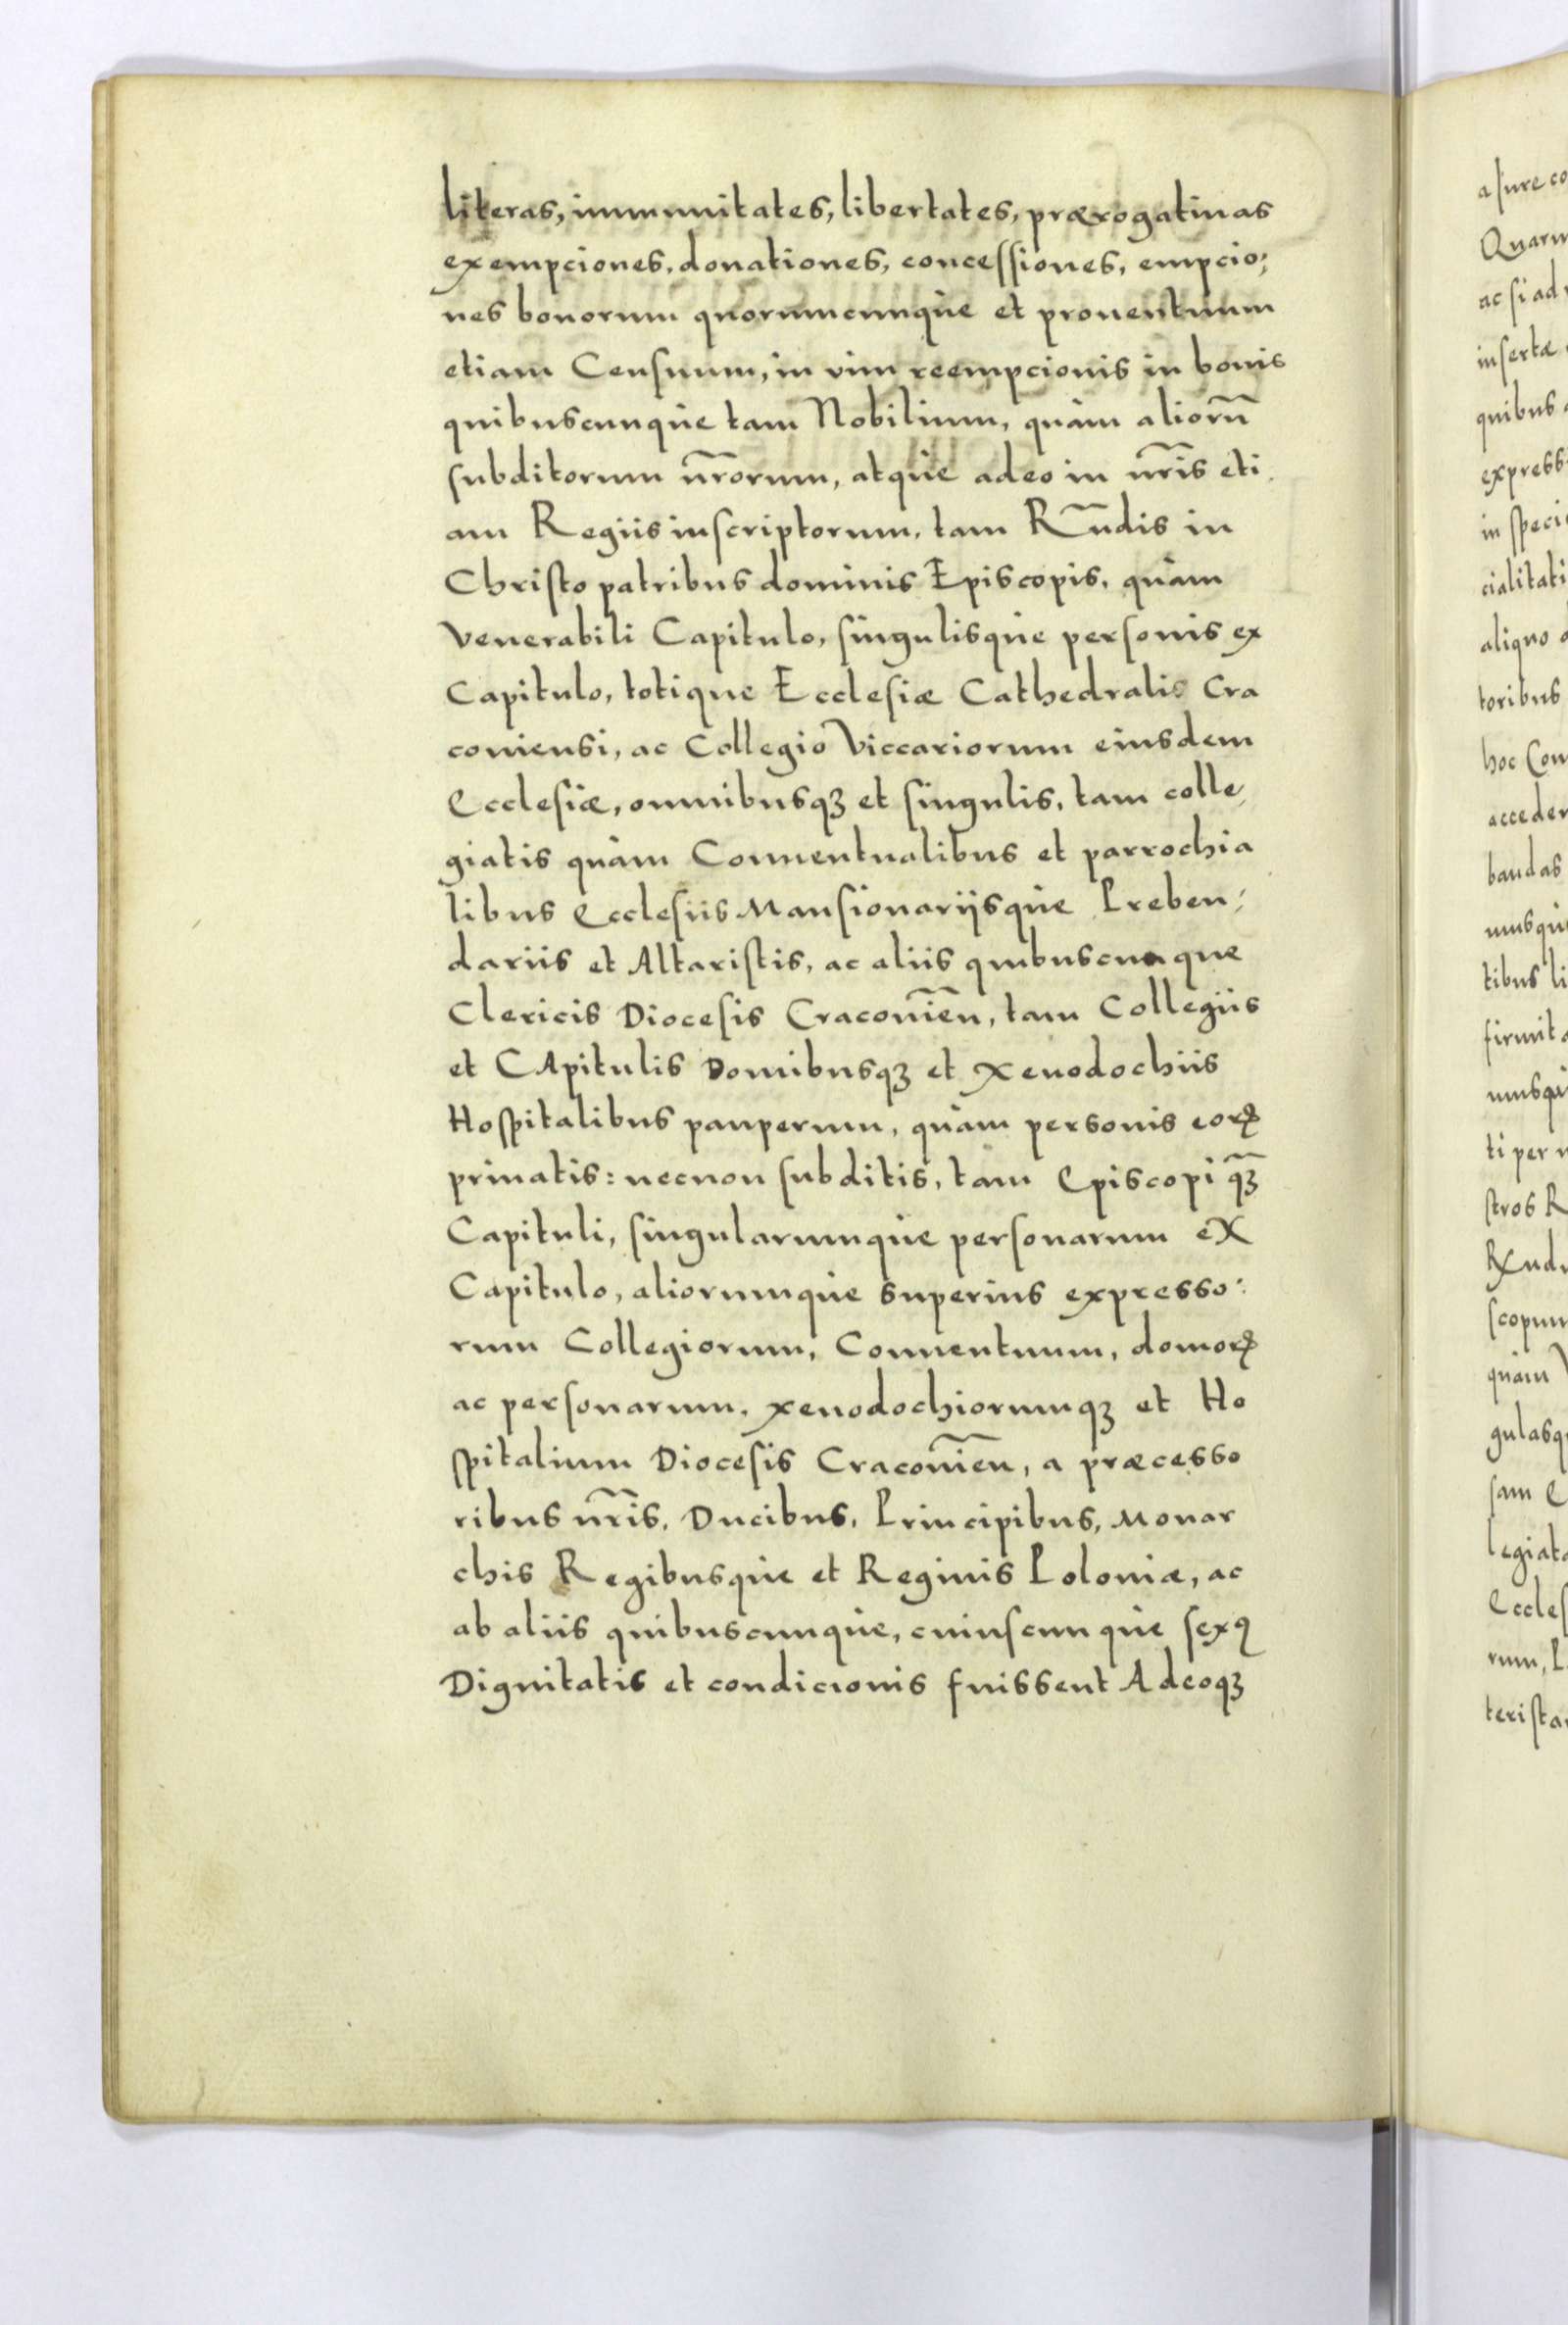 literas, immunitates, libertates, prærogatiuas
exempciones, donationes, conceſſiones, empcio:
nes bonorum quorumcunque et prouentuum
etiam Cenſuum, in vim reempcionis in bonis
quibuscunque tam Nobilium, quàm aliorū
ſubditorum nr̄orum, atque adeo in nr̄is eti
am Regiis inſcriptorum, tam Rn̄dis in
Chriſto patribus dominis Episcopis, quàm
Venerabili Capitulo, ſingulisque perſonis ex
Capitulo, totique Eccleſiæ Cathedralis Cra
couiensi, ac Collegio Viccariorum eiusdem
Eccleſiæ, omnibusqꝫ et ſingulis, tam colle,
giatis quàm Conuentualibus et parrochia
libus Eccleſiis Manſionariisque Preben:
dariis et Altariſtis, ac aliis quibuscunque
Clericis Dioceſis Cracouien̄, tam Collegiis
et CApitulis Domibusqꝫ et xenodochiis
Hoſpitalibus pauperum, quàm personis eoꝝ
priuatis: necnon ſubditis, tam Episcopi qꝫ̄
Capituli, ſingularumque perſonarum eX
Capitulo, aliorumque superius expresso:
rum Collegiorum, Conuentuum, domoꝝ
ac perſonarum, xenodochiorumqꝫ et Ho
ſpitalium Dioceſis Cracouien̄, a præcesso
ribus nr̄is, Ducibus, Principibus, Monar
chis Regibusque et Reginis Poloniæ, ac
ab aliis quibuscunque, cuiuſcunque ſexꝰ
Dignitatis et condicionis fuissent Adeoqꝫ